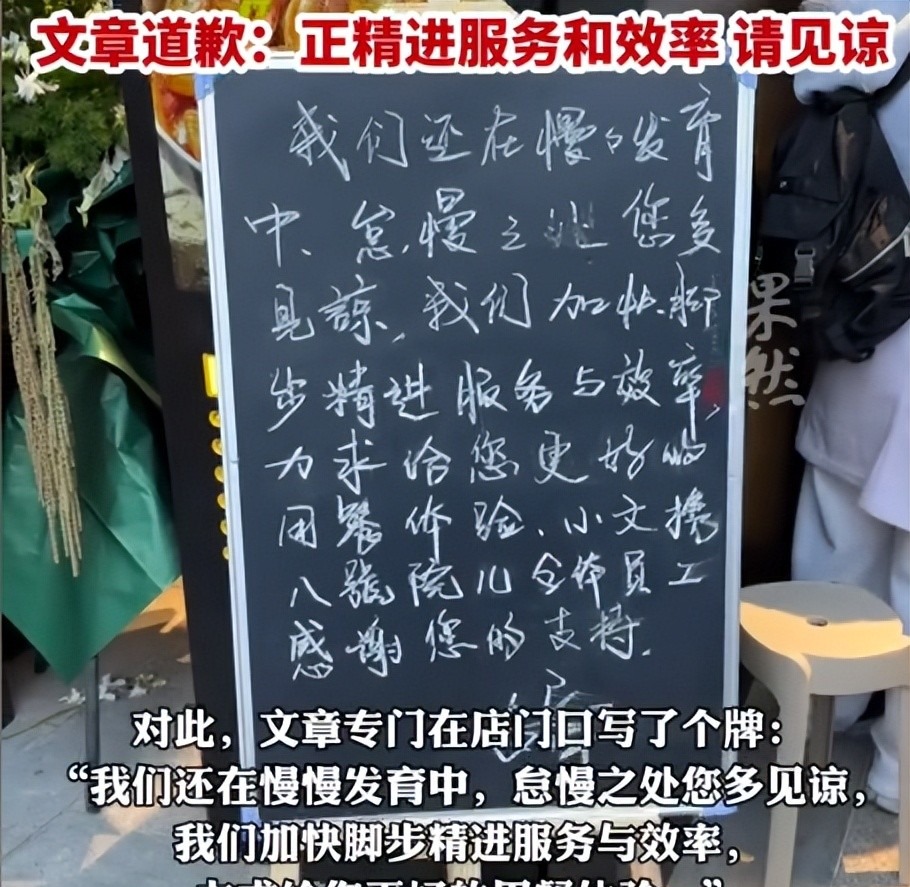 文章道歉：正精进服务和效率 请见谅
我们还在慢々发育
中、怠慢之处您多
見諒、我们加快脚
步精进服务与效率，
力求给您更好的
用餐体验、小文携
八號院儿全体员工
感谢您的支持.
果然
对此，文章专门在店门口写了个牌：
“我们还在慢慢发育中，怠慢之处您多见谅，
我们加快脚步精进服务与效率，
力求给您更好的用餐体验。”